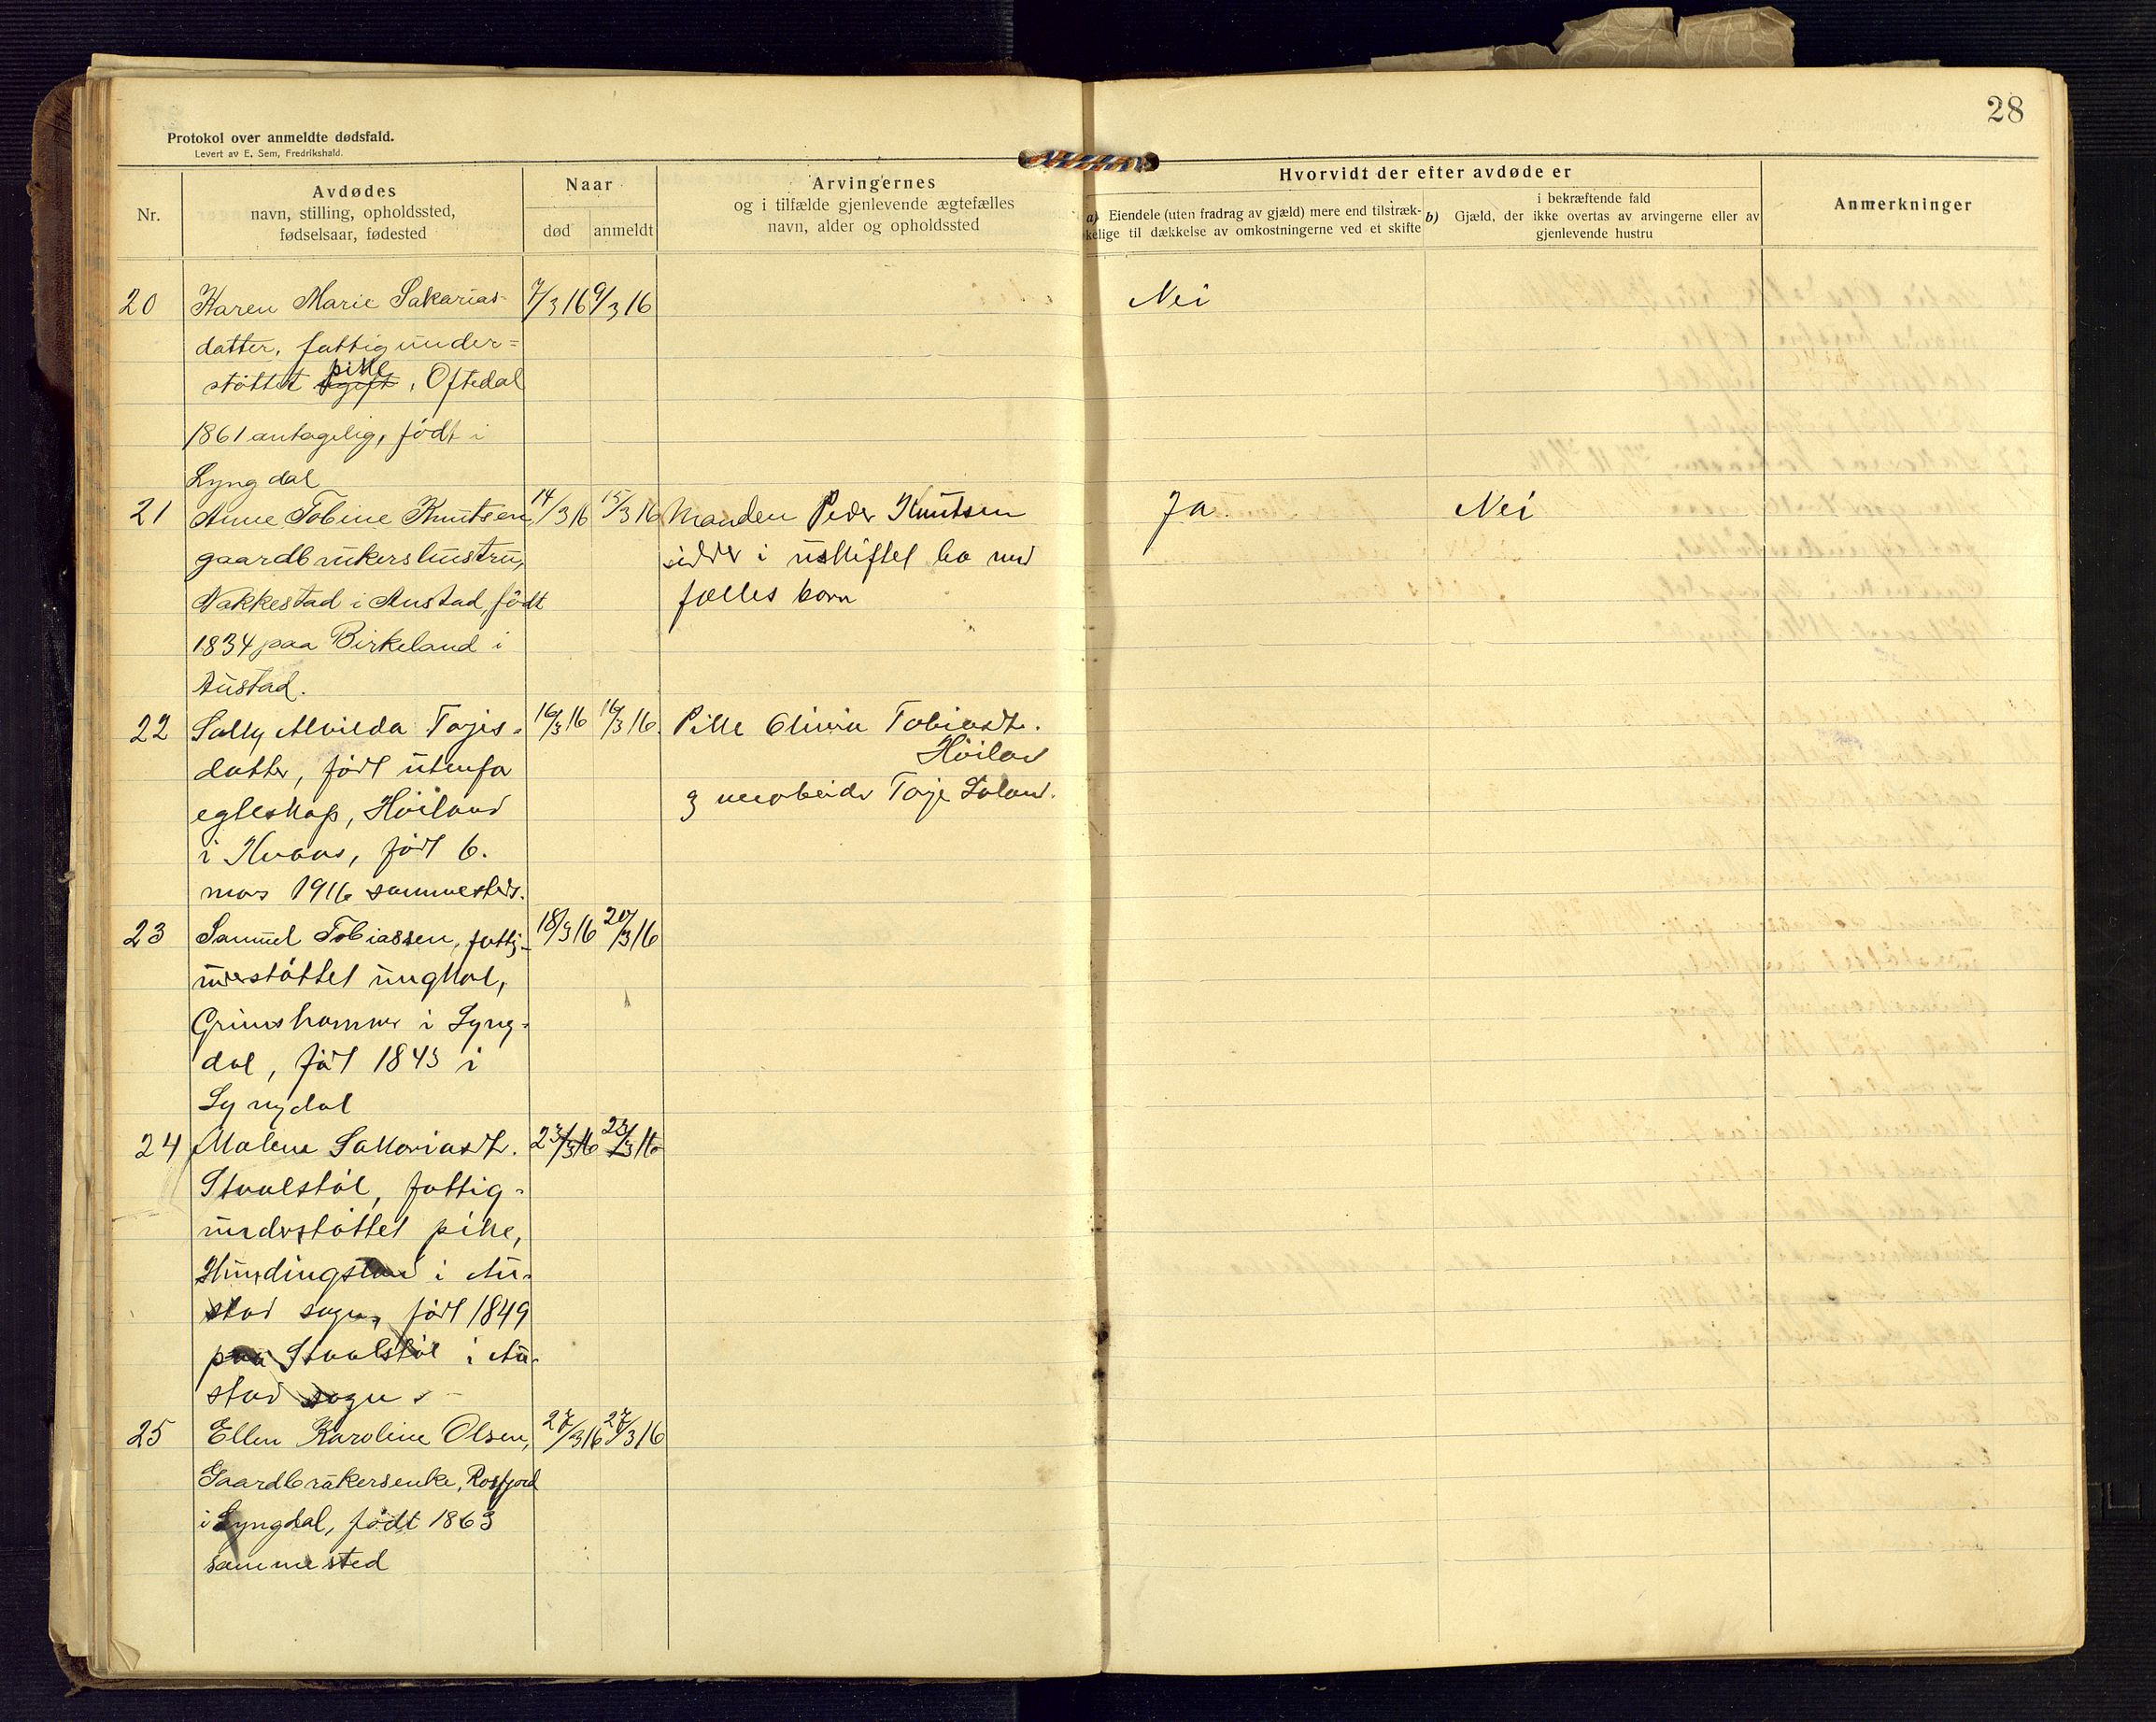 28
Protokol over anmeldte dødsfald.
Levert av E. Sem, Fredrikshald.
Nr.
Avdødes
navn, stilling, opholdssted,
fødselsaar, fødested
Naar
død anmeldt
Arvingernes
og i tilfælde gjenlevende ægtefælles
navn, alder og opholdssted
Hvorvidt der efter avdøde er
a) Eiendele (uten fradrag av gjæld) mere end tilstræk-
kelige til dækkelse av omkostningerne ved et skifte
i bekræftende fald
b) Gjæld, der ikke overtas av arvingerne eller av
gjenlevende hustru
Anmerkninger
20 Karen Marie Sakarias- 7/3 16 9/3 16 Nei
datter, fattigunder=
støttet ugift pike, Oftedal
1861 antagelig, født i
Lyngdal
21 Anne Tobine Knutsen 14/3 16 15/3 16 Manden Peder Knutsen Ja. Nei
gaardbrukershustru, sidder i uskiftet bo med
Nakkestad i Austad, født fælles born
1834 paa Birkeland i
Austad.
22 Sally Alvilda Tojis- 16/3 16 16/3 16. Pike Olivia Tobiasdt.
datter, født utenfor Höiland
egteskap, Höiland Toje
i Kvaas, født 6.
mars 1916 sammesteds.
23 Samuel Tobiassen, fattig- 18/3 16 20/3 16
understøttet ungkal,
Grimshammer i Lyng-
dal, født 1843 i
Lyngdal
24 Malene Sakariasdt. 23/3 16 23/3 16
Staalstøl, fattig-
understøttet pike,
i Au-
stad sogn, født 1849
paa Staalstøl i Au-
stad sogn.
25 Ellen Karoline Olsen, 27/3 16 27/3 16
Gaardbrukersenke, Rosfjord
i Lyngdal, født 1863
sammested